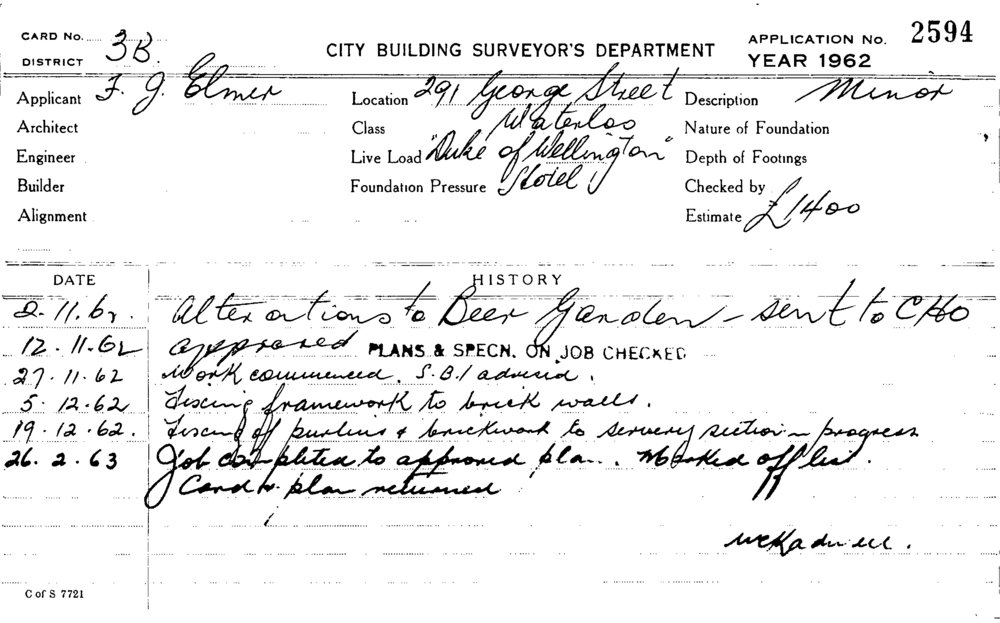 CARD No.
DISTRICT 3B.
CITY BUILDING SURVEYOR'S DEPARTMENT
APPLICATION No. 2594
YEAR 1962
Applicant F. J. Elmer
Location 291 George Street
Description Minor
Architect
Class Waterloo
Nature of Foundation
Engineer
Live Load "Duke of Wellington"
Depth of Footings
Builder
Foundation Pressure Hotel
Checked by
Alignment
Estimate £1400
DATE HISTORY
2.11.62. Alterations to Beer Garden - sent to CHO
12.11.62 approved PLANS & SPECN. ON JOB CHECKED
27.11.62 Work commenced. S.B.I advised.
5.12.62 Fixing framework to brick walls.
19.12.62. Fixing of purlins & brickwork to servery section in progress
26.2.63 Job completed to approved plan. Marked off list.
Card & plan returned
C of S 7721